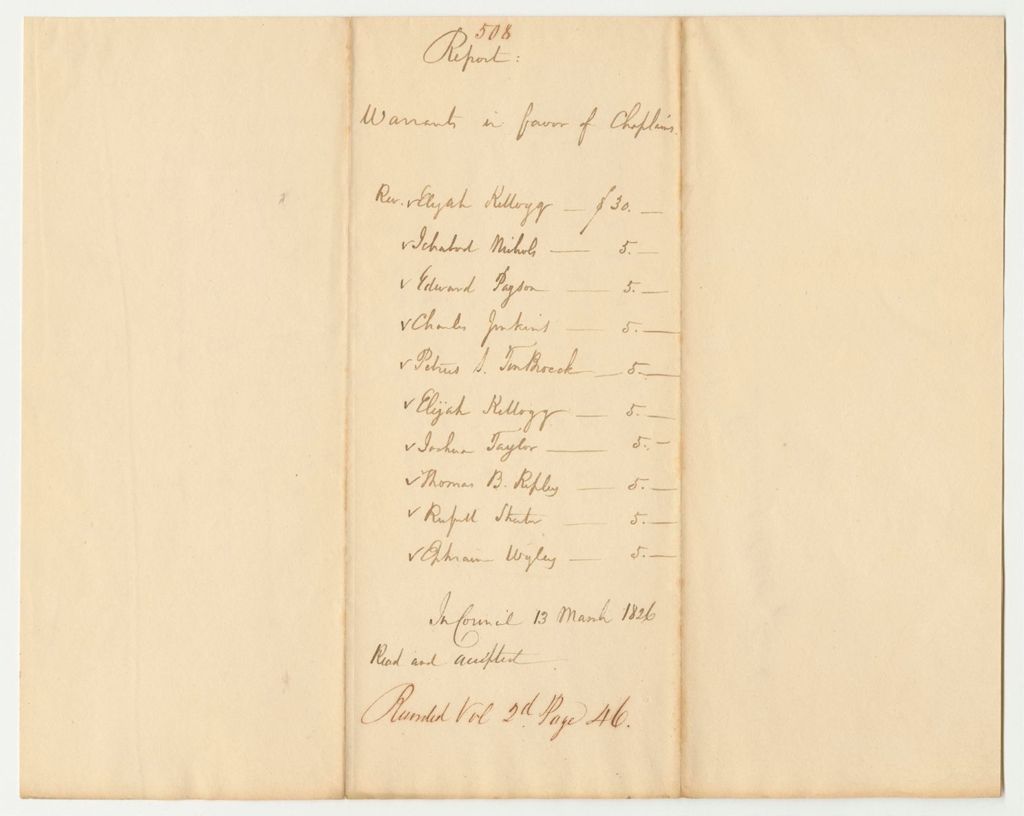 508
Report:
Warrants in favor of Chaplains.
Rev. ✓Elijah Kellogg — $30. —
✓Ichabod Nichols — 5. —
✓Edward Payson — 5. —
✓Charles Jenkins — 5. —
✓Petrus S. TenBroeck — 5. —
✓Elijah Kellogg — 5. —
✓Joshua Taylor — 5. —
✓Thomas B. Ripley — 5. —
✓ — 5. —
✓Ephraim Wyley — 5. —
In Council 13 March 1826
Read and accepted
Recorded Vol 2d. Page 46.